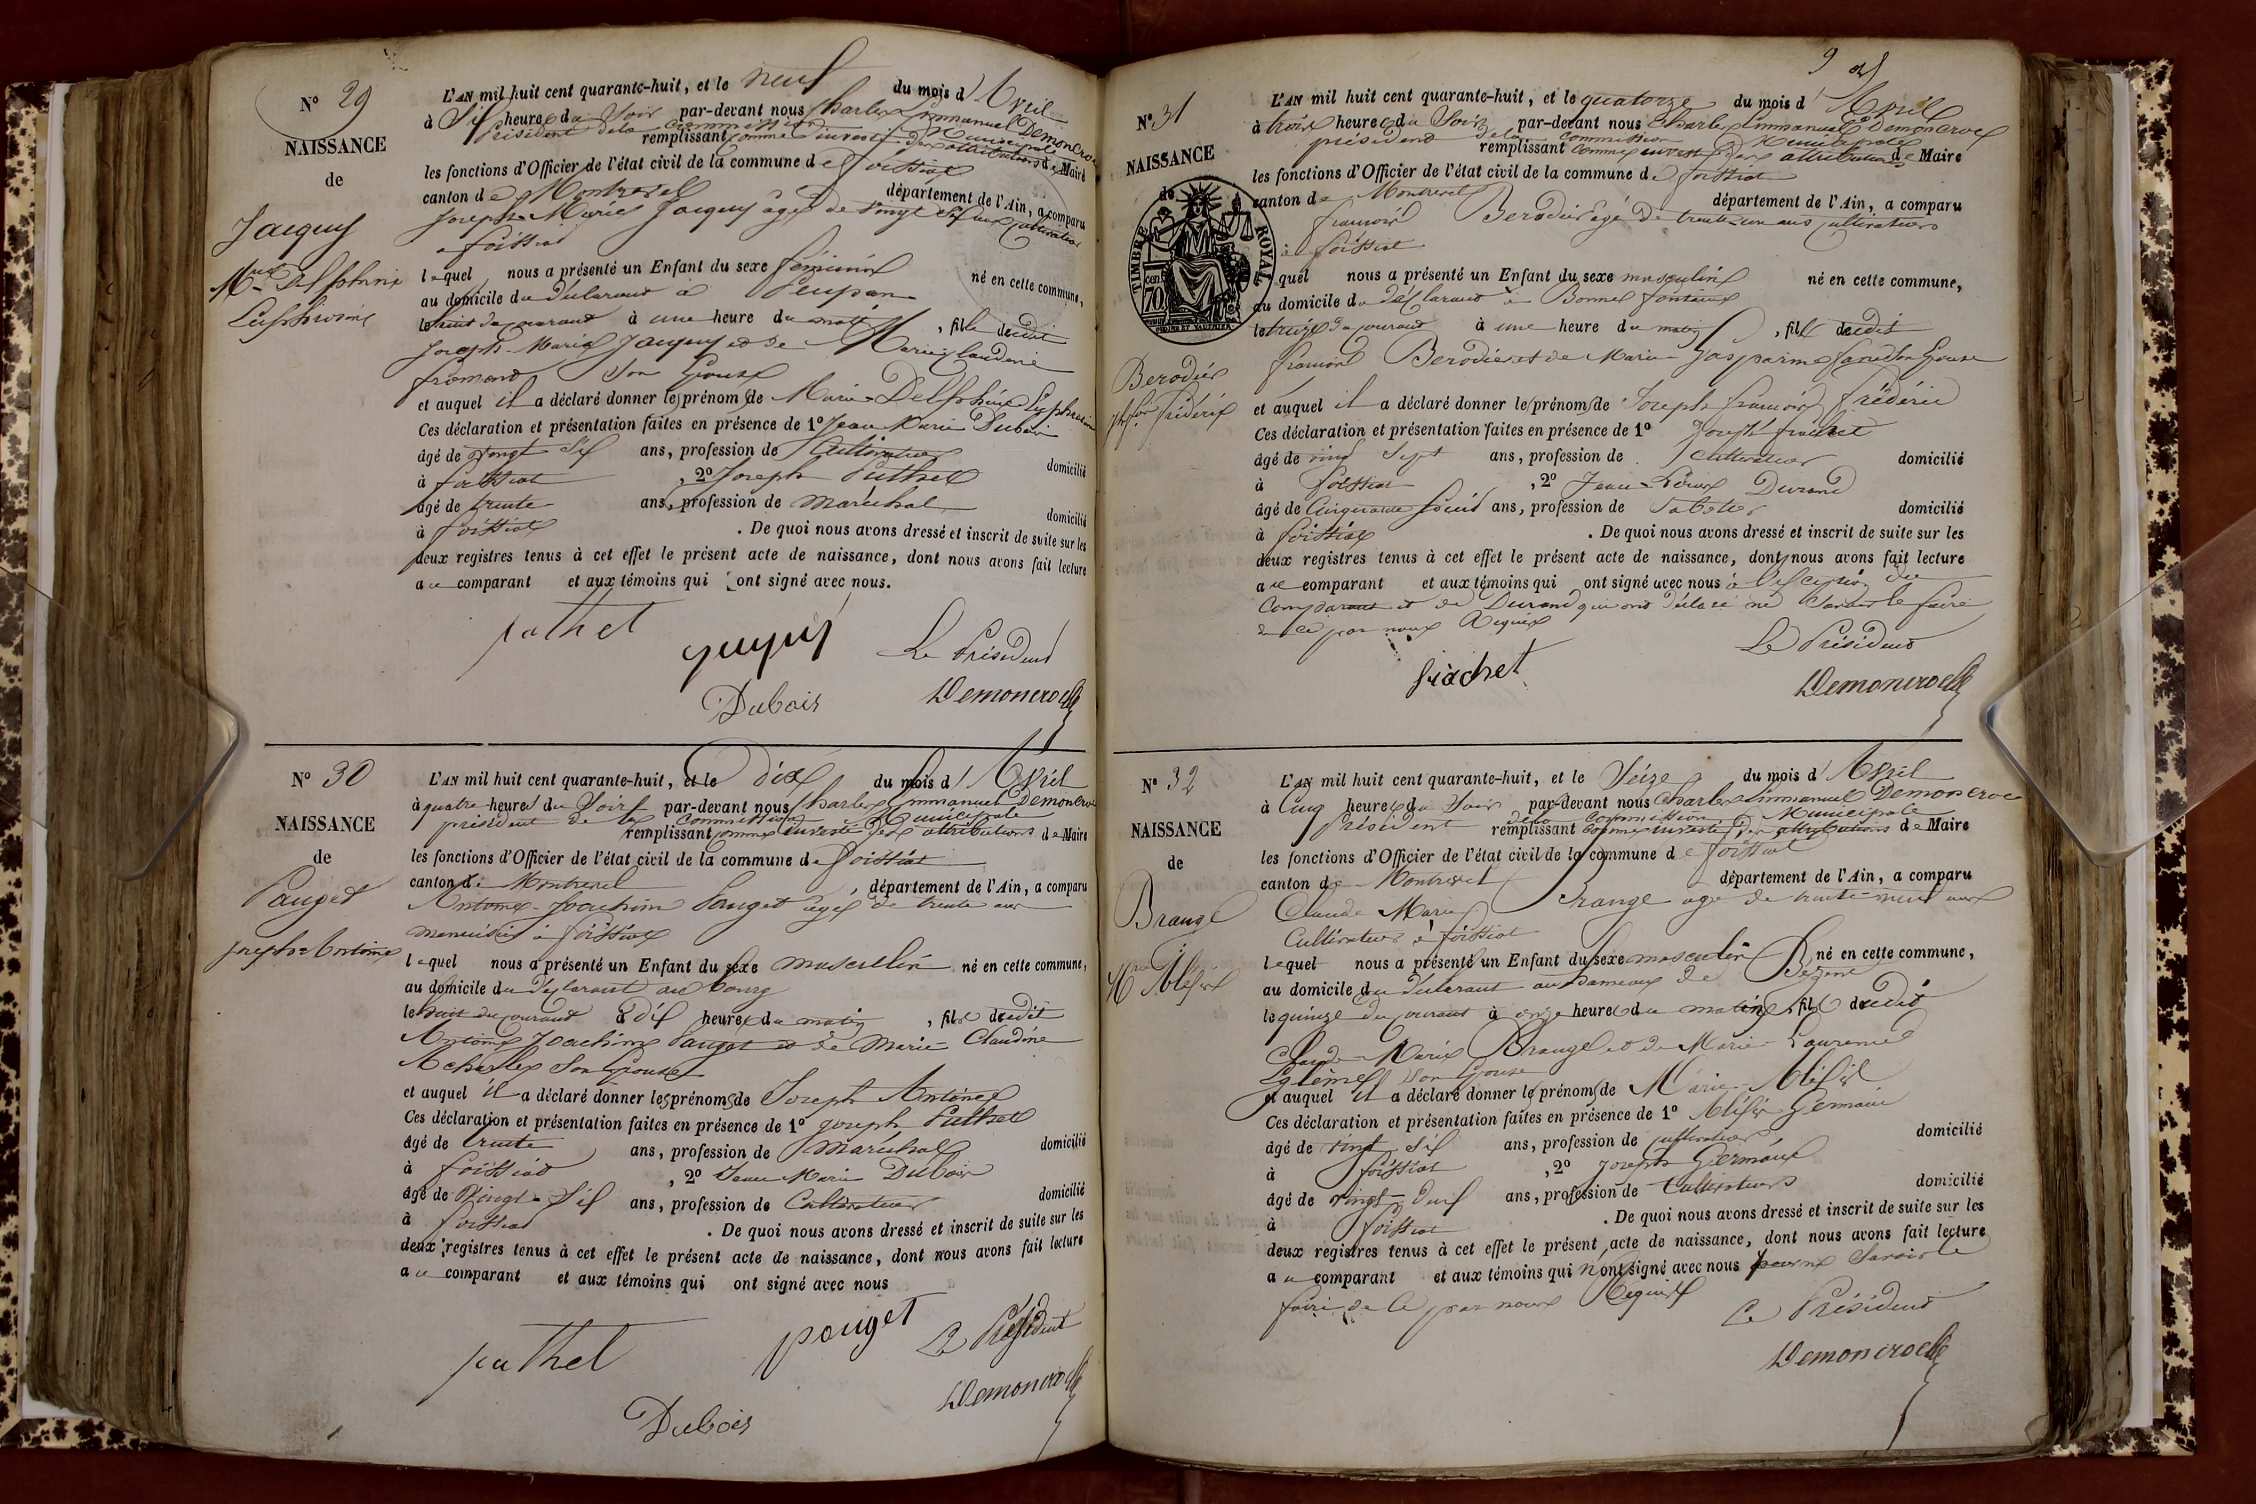 Nº 29
NAISSANCE
de
Jacquy
Mie Delphine
Euphrosine
L'AN mil huit cent quarante-huit, et le neuf du mois d'Avril
à Six heures du Soir par-devant nous Charles Emmanuel Demoncroc
Président de la commission Municipale
remplissant comme investi des attributions de Maire
les fonctions d'Officier de l'état civil de la commune de foissiat
canton de Montrevel département de l'Ain, a comparu
Joseph Marie Jacquy agé de vingt six ans cultivateur
a foissiat
lequel nous a présenté un Enfant du sexe féminin né en cette commune,
au domicile du déclarant à
le huit du courant à une heure du matin, fille dudit
Joseph-Marie Jacquy et de Marie Claudine
fromond Son Epouse
et auquel il a déclaré donner les prénoms de Marie Delphine Euphrosine
Ces déclaration et présentation faites en présence de 1º Jean Marie Dubois
âgé de vingt Six ans, profession de Cultivateur domicilié
à foissiat, 2º Joseph Puthet
âgé de trente ans, profession de maréchal domicilié
à foissiat. De quoi nous avons dressé et inscrit de suite sur les
deux registres tenus à cet effet le présent acte de naissance, dont nous avons fait lecture
au comparant et aux témoins qui ont signé avec nous.
puthet
Le Président
Dubois Demoncroc
Nº 30
NAISSANCE
de
Pauget
Joseph Antoine
L'AN mil huit cent quarante-huit, et le dix du mois d'Avril
à quatre heures du Soir par-devant nous Charles Emmanuel Demoncroc
président de la commission Municipale
remplissant comme investi des attributions de Maire
les fonctions d'Officier de l'état civil de la commune de foissiat
canton de Montrevel département de l'Ain, a comparu
Antoine-Joachim Pauget agé de trente ans
menuisier à foissiat
lequel nous a présenté un Enfant du sexe masculin né en cette commune,
au domicile du déclarant au bourg
le huit du courant à dix heures du matin, fils dudit
Antoine Joachim Pauget et de Marie Claudine
Son Epouse
et auquel il a déclaré donner les prénoms de Joseph Antoine
Ces déclaration et présentation faites en présence de 1º Joseph Puthet
âgé de trente ans, profession de Maréchal domicilié
à foissiat, 2º Jean Marie Dubois
âgé de Vingt-Six ans, profession de Cultivateur domicilié
à foissiat. De quoi nous avons dressé et inscrit de suite sur les
deux registres tenus à cet effet le présent acte de naissance, dont nous avons fait lecture
au comparant et aux témoins qui ont signé avec nous
puthet pouget Le Président
Dubois Demoncroc
9
Nº 31
NAISSANCE
de
TIMBRE ROYAL
cen 70
Berodier
Jph fçois frédéric
L'AN mil huit cent quarante-huit, et le quatorze du mois d'Avril
à trois heures du Soir par-devant nous Charles Emmanuel Demoncroc
président de la commission Municipale
remplissant comme investi des attributions de Maire
les fonctions d'Officier de l'état civil de la commune de foissiat
canton de Montrevel département de l'Ain, a comparu
françois Berodier agé de trente-un ans cultivateur
à foissiat
quel nous a présenté un Enfant du sexe masculin né en cette commune,
au domicile du déclarant à Bonne fontaine
le treize du courant à une heure du matin, fils dudit
françois Berodier et de Marie Epouse
et auquel il a déclaré donner les prénoms de Joseph françois frédéric
Ces déclaration et présentation faites en présence de 1º Joseph
âgé de vingt Sept ans, profession de cultivateur domicilié
à foissiat, 2º Jean Durand
âgé de Cinquante ans, profession de Sabotier domicilié
à foissiat. De quoi nous avons dressé et inscrit de suite sur les
deux registres tenus à cet effet le présent acte de naissance, dont nous avons fait lecture
au comparant et aux témoins qui ont signé avec nous à l'exception du
comparant et de Durand qui ont déclaré ne Savoir le faire
de ce par nous Requis
Le Président
Demoncroc
Nº 32
NAISSANCE
de
Brangé
Mie Alexis
L'AN mil huit cent quarante-huit, et le Seize du mois d'Avril
à Cinq heures du Soir par-devant nous Charles Emmanuel Demoncroc
Président de la commission Municipale
remplissant comme investi des attributions de Maire
les fonctions d'Officier de l'état civil de la commune de foissiat
canton de Montrevel département de l'Ain, a comparu
Claude Marie Brangé agé de trente-neuf ans
Cultivateur à foissiat
lequel nous a présenté un Enfant du sexe masculin né en cette commune,
au domicile du déclarant au hameau de
le quinze du courant à onze heures du matin, fils dudit
Claude-Marie Brangé et de Marie-Laurence
Son Epouse
et auquel il a déclaré donner les prénoms de Marie-Alexis
Ces déclaration et présentation faites en présence de 1º Alexis Germain
âgé de vingt Six ans, profession de cultivateur domicilié
à foissiat, 2º Joseph Germain
âgé de vingt-deux ans, profession de Cultivateur domicilié
à foissiat. De quoi nous avons dressé et inscrit de suite sur les
deux registres tenus à cet effet le présent acte de naissance, dont nous avons fait lecture
au comparant et aux témoins qui n'ont signé avec nous pour ne Savoir le
faire de ce par nous Requis
Le Président
Demoncroc